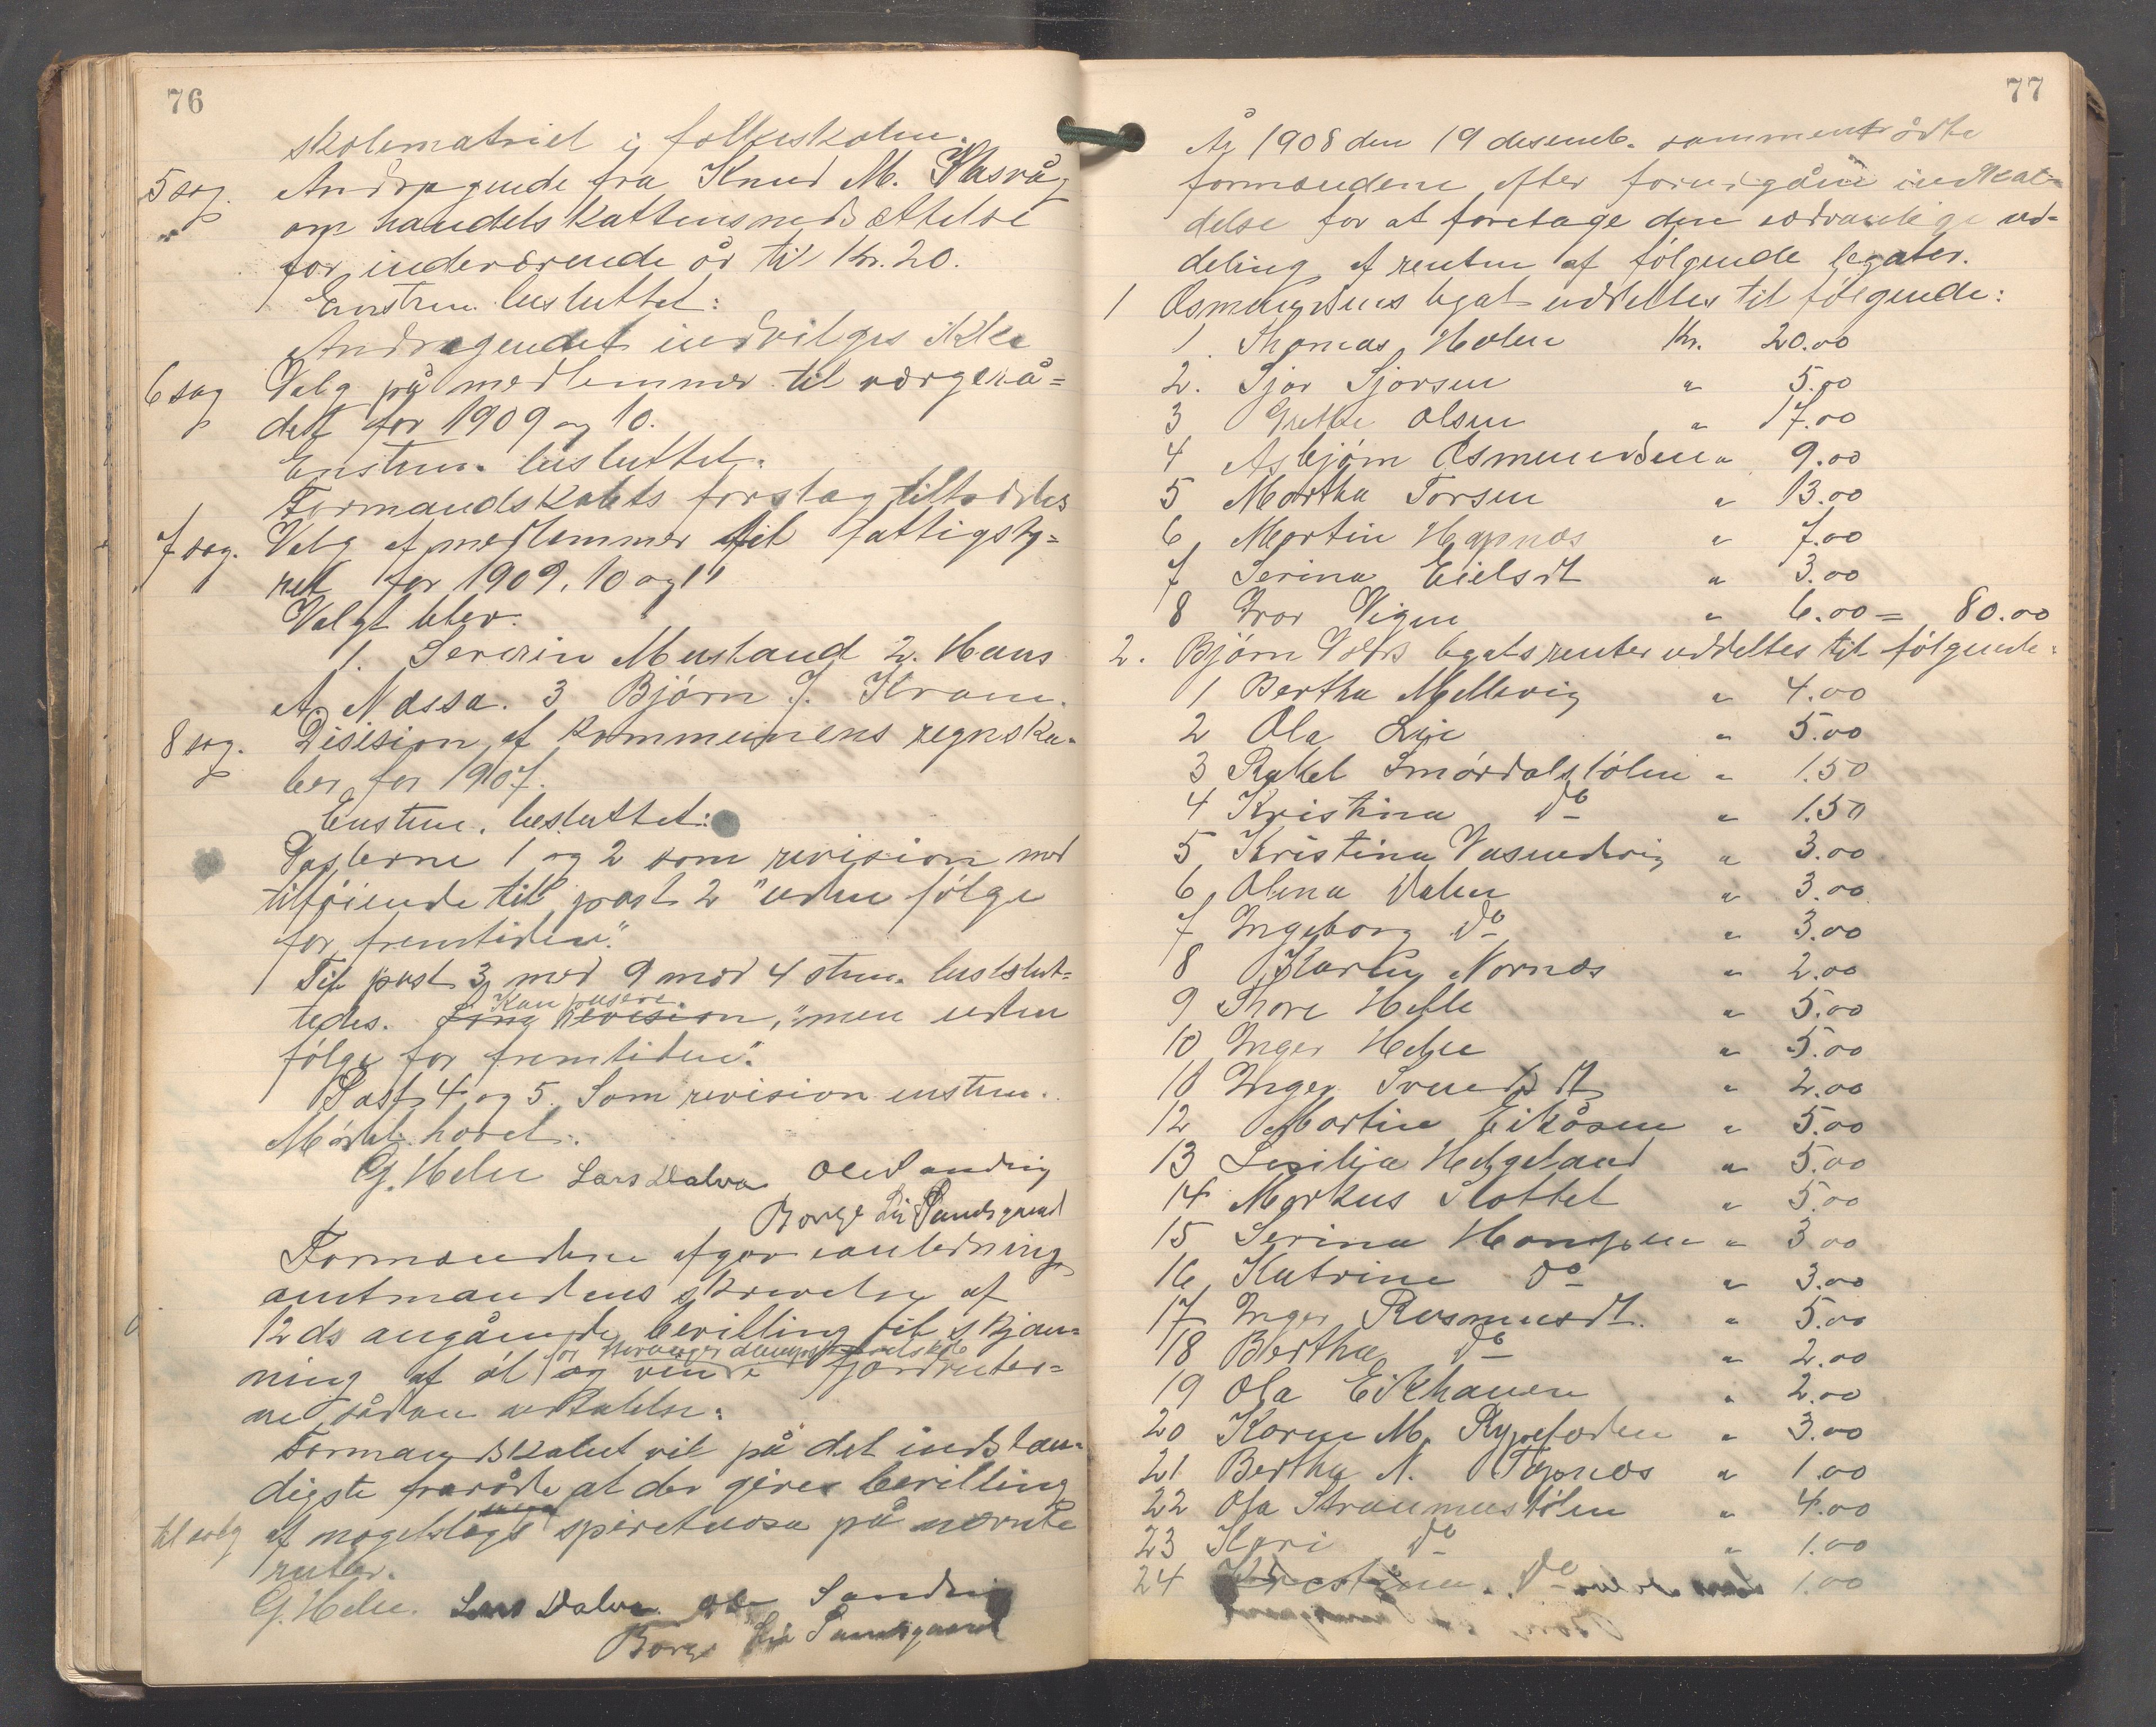 76
skolematriel i folkeskolen.
5 sag. Andragende fra Knud M. Hasvåg
om handelskattens nedsættelse
for indeværende år til Kr. 20.
Enstem. besluttet:
Andragendet indvilges ikke
6 sag Valg på medlemmer til værgerå=
det for 1909 og 10.
Enstem. besluttet.
Formandskabets forslag tiltrædes
7 sag. Valg af medlemmer til fattigsty=
ret for 1909, 10 og 11
Valgt blev.
1. Severin Musland 2. Hans
A. Næssa. 3 Bjørn J. Kram.
8 sag. Desision af kommunens regnska=
ber for 1907.
Enstem. besluttet:
Posterne 1 og 2 som revision med
tilføiende til post 2 "uden følge
for fremtiden".
Til post 3 med 9 mod 4 stem. beslut=
Kan pasere
tedes. Som revision, "men uden
følge for fremtiden".
Post 4 og 5. Som revision enstem.
Mødet hævet.
G. Helle Lars Dalva Ole Sandvig
Borge Li Sandsgaard
Formændene afgav i anledning
amtmandens skrivelse af
12 ds angående bevilling til skjæn=
for Stavanger dampskibsselskab
ning af øl og vin i fjordruter=
ne sådan udtalelse:
Formandskabet vil på det indstæn=
digste fraråde at der gives bevilling
til salg af nogetslags spirituosa på nævnte
ruter.
G. Helle. Lars Dalva Ole Sandvig
Borge Li Sandsgaard
77
År 1908 den 19 desemb. sammentrådte
formændene efter forudgåen indkal=
delse for at foretage den sedvanlige ud=
deling af renten af følgende legater.
1 Osmundsens legat uddeltes til følgende:
1. Thomas Holen Kr. 20.00
2. Sjor Sjorsen " 5.00
3 Grethe Olsen " 17.00
4 Asbjørn Osmundsen " 9.00
5 Martha Torsen " 13.00
6 Martin Hapnæs " 7.00
7 Serina Eielsdt " 3.00
8 Ivar Vigen " 6.00 = 80.00
2. Bjørn legats renter uddeltes til følgende:
1 Bertha Mellevig " 4.00
2 Ola Lie " 5.00
3 Rakel Smørdalstølen " 1.50
4 Kristina do " 1.50
5 Kristina Vasendvig " 3.00
6 Olena Dalen " 3.00
7 Ingeborg do " 3.00
8 Marthe Nornæs " 2.00
9 Thore Helle " 5.00
10 Inger Helle " 5.00
10 Inger Svendsdt " 2.00
12 Martin Eikåsen " 5.00
13 Sesilia Helgeland " 5.00
14 Markus Slottet " 5.00
15 Serina Hangen " 3.00
16 Katrine do " 3.00
17 Inger Rasmusdt. " 5.00
18 Bertha do " 2.00
19 Ola Eikhauen " 2.00
20 Karen M. Rypefoden " 3.00
21 Bertha N. Tøpnæs " 1.00
22 Ola Straumustølen " 4.00
23 Kari do " 1.00
24 Kristina do 1.00